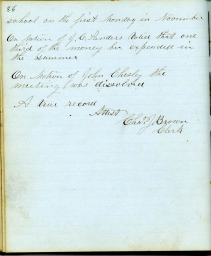 86
school on the first Monday in November
On Motion of J. C. Sanders Voted that one
third of the money be expended in
the Summer
On Motion of John Chesley the
meeting was dissolved
A true record
Attest
Chas J. Brown
Clerk